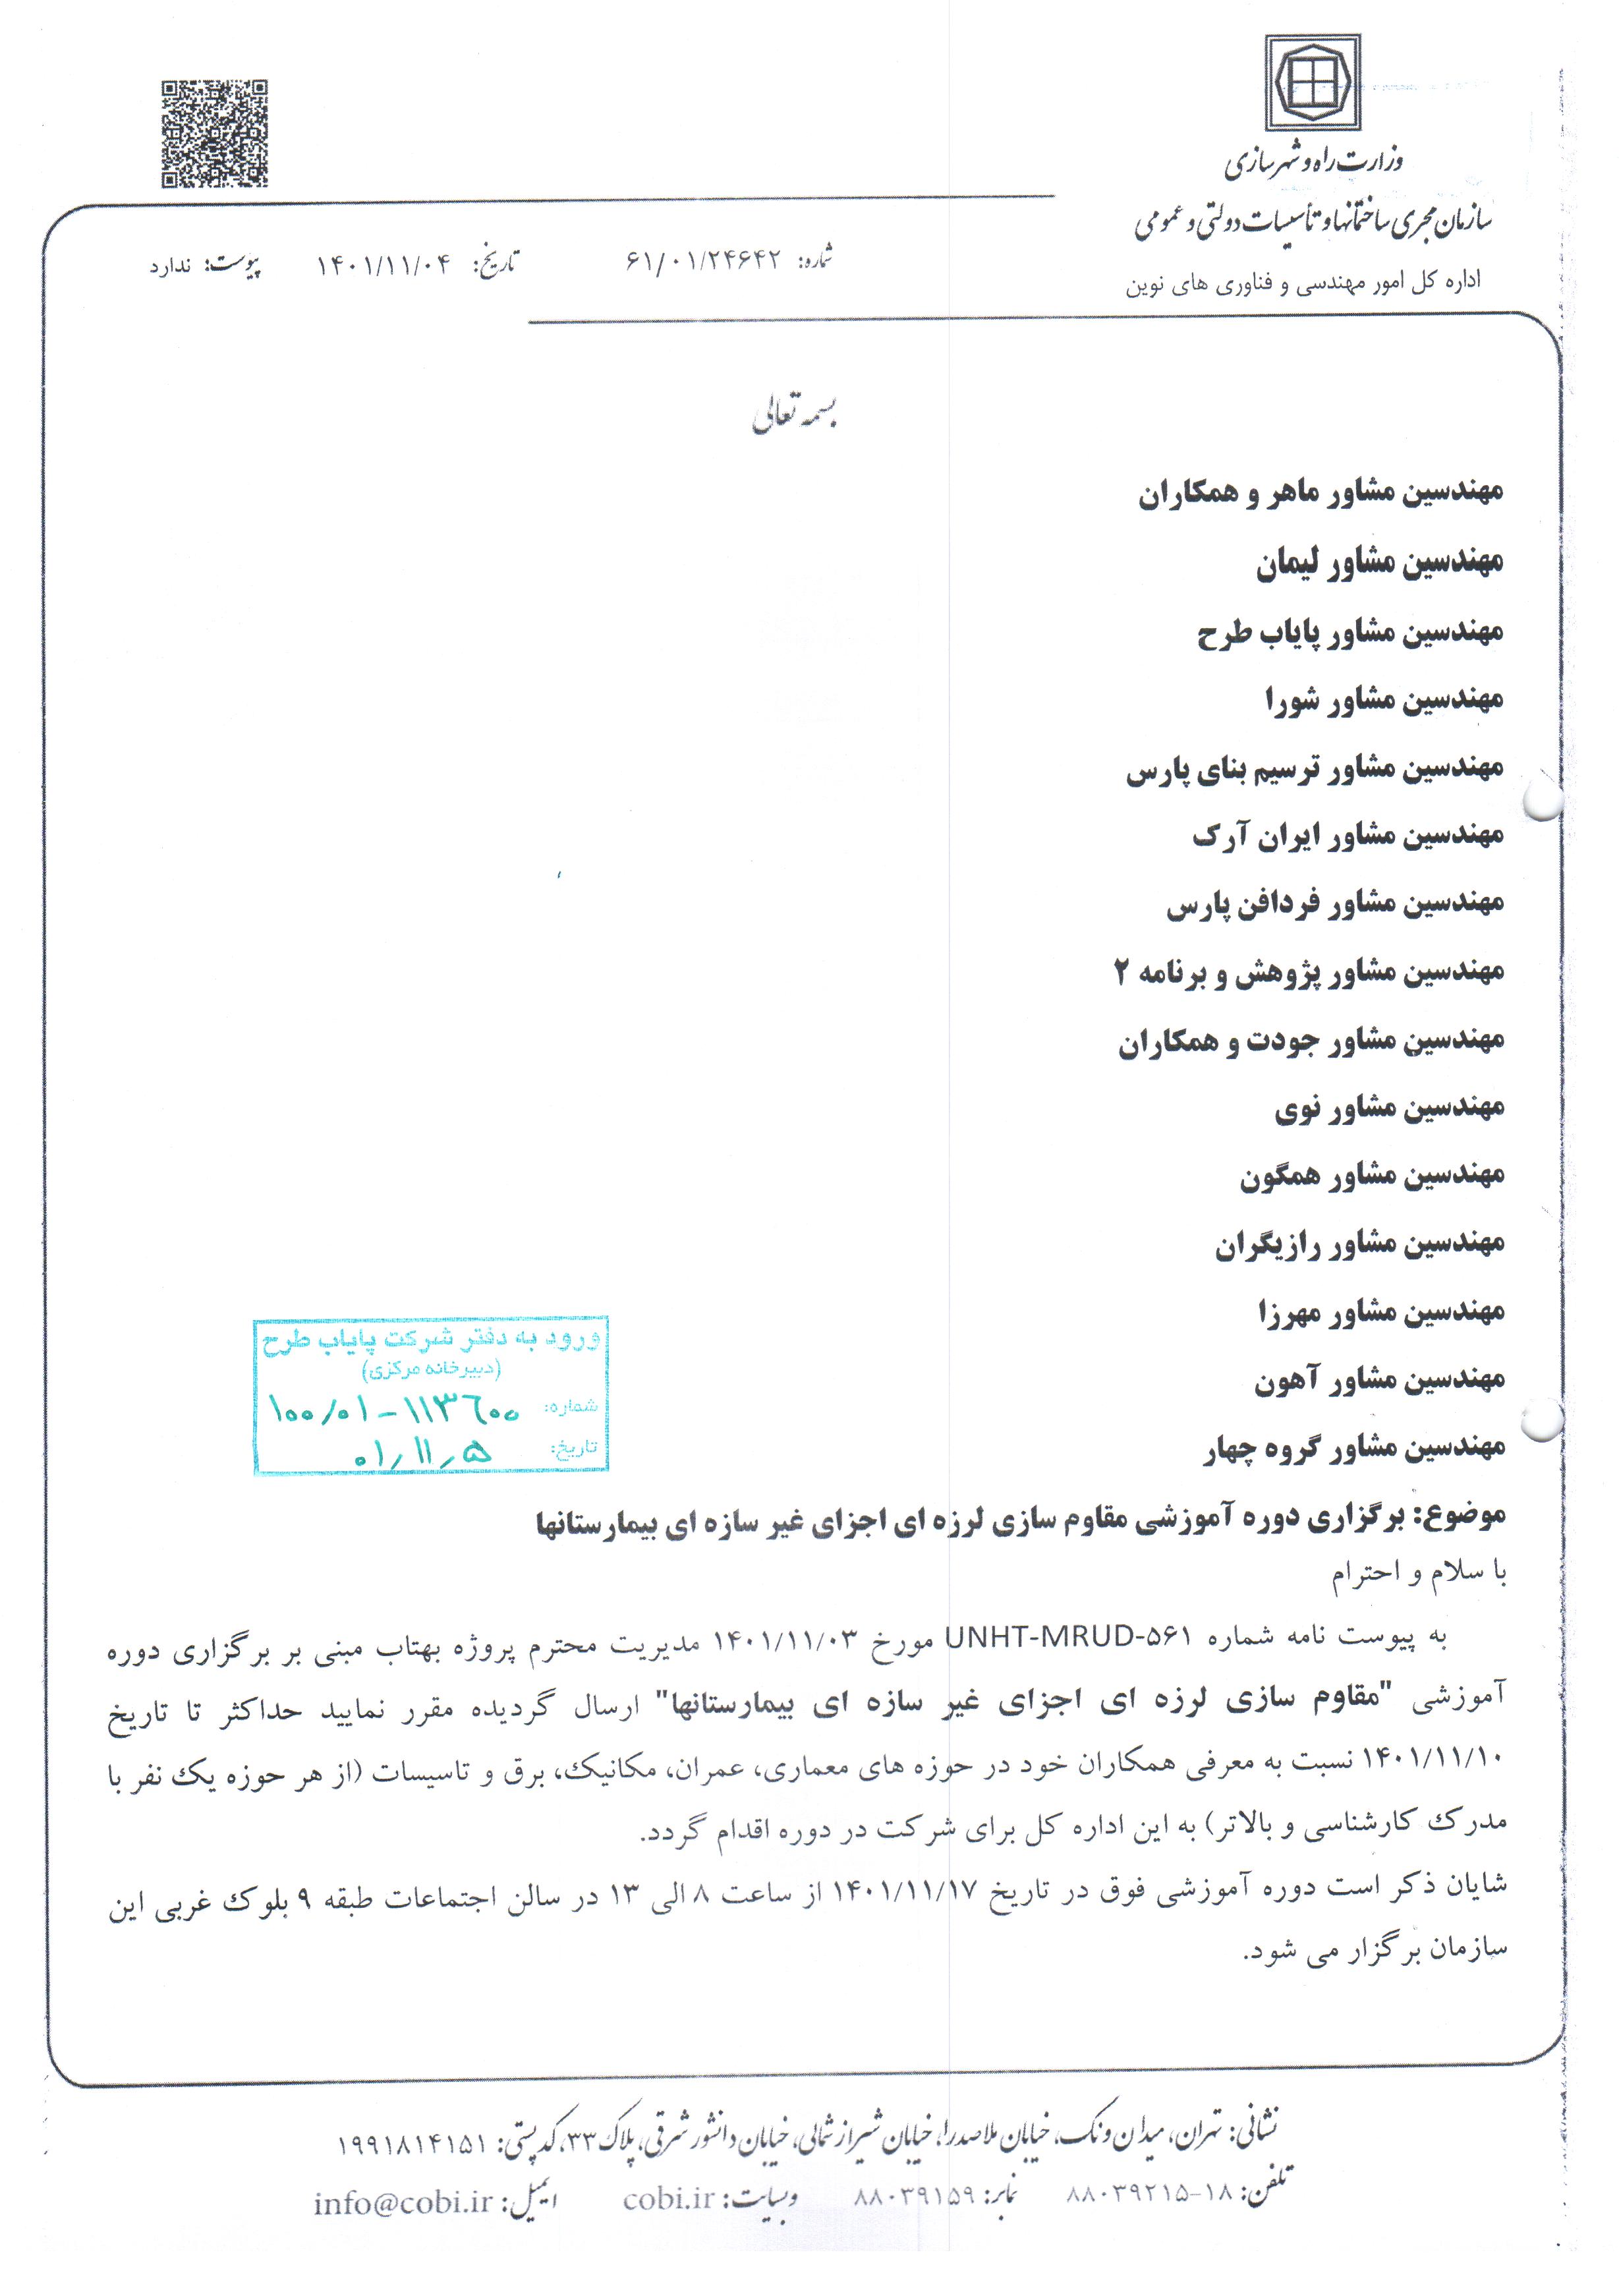 وزارت راه و شهرسازی
سازمان مجری ساختمانها و تأسیسات دولتی و عمومی
اداره کل امور مهندسی و فناوری های نوین
شماره: ۶۱/۰۱/۲۴۶۴۲
تاریخ: ۱۴۰۱/۱۱/۰۴
پیوست: ندارد
بسمه تعالی
مهندسین مشاور ماهر و همکاران
مهندسین مشاور لیمان
مهندسین مشاور پایاب طرح
مهندسین مشاور شورا
مهندسین مشاور ترسیم بنای پارس
مهندسین مشاور ایران آرک
مهندسین مشاور فردافن پارس
مهندسین مشاور پژوهش و برنامه ۲
مهندسین مشاور جودت و همکاران
مهندسین مشاور نوی
مهندسین مشاور همگون
مهندسین مشاور رازیگران
مهندسین مشاور مهرزا
مهندسین مشاور آهون
مهندسین مشاور گروه چهار
ورود به دفتر شرکت پایاب طرح
(دبیرخانه مرکزی)
شماره: ۱۰۰/۰۱-۱۱۳۶۰۰
تاریخ: ۰۱/۱۱/۵
موضوع: برگزاری دوره آموزشی مقاوم سازی لرزه ای اجزای غیر سازه ای بیمارستانها
با سلام و احترام
به پیوست نامه شماره UNHT-MRUD-۵۶۱ مورخ ۱۴۰۱/۱۱/۰۳ مدیریت محترم پروژه بهتاب مبنی بر برگزاری دوره
آموزشی "مقاوم سازی لرزه ای اجزای غیر سازه ای بیمارستانها" ارسال گردیده مقرر نمایید حداکثر تا تاریخ
۱۴۰۱/۱۱/۱۰ نسبت به معرفی همکاران خود در حوزه های معماری، عمران، مکانیک، برق و تاسیسات (از هر حوزه یک نفر با
مدرک کارشناسی و بالاتر) به این اداره کل برای شرکت در دوره اقدام گردد.
شایان ذکر است دوره آموزشی فوق در تاریخ ۱۴۰۱/۱۱/۱۷ از ساعت ۸ الی ۱۳ در سالن اجتماعات طبقه ۹ بلوک غربی این
سازمان برگزار می شود.
نشانی: تهران، میدان ونک، خیابان ملاصدرا، خیابان شیراز شمالی، خیابان دانشور شرقی، پلاک ۳۳، کد پستی: ۱۹۹۱۸۱۴۱۵۱
تلفن: ۱۸-۸۸۰۳۹۲۱۵ نمابر: ۸۸۰۳۹۱۵۹ وبسایت: cobi.ir ایمیل: info@cobi.ir